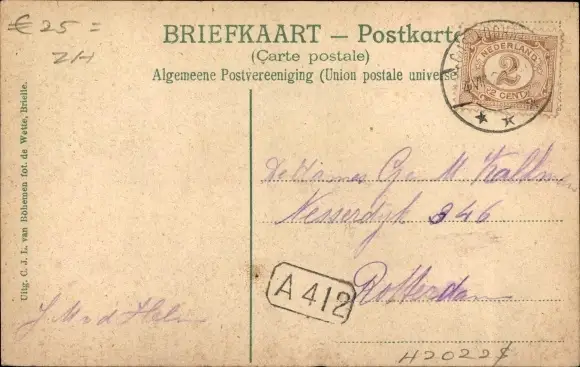 € 25 =
ZH
BRIEFKAART — Postkarte
(Carte postale)
Algemeene Postvereeniging (Union postale universe
NEDERLAND
2
2 CENT
Uitg. C. J. L. van Böhemen fot. de Wette, Brielle.
M
Nesserdyk 346
Rotterdam
A 412
H20229